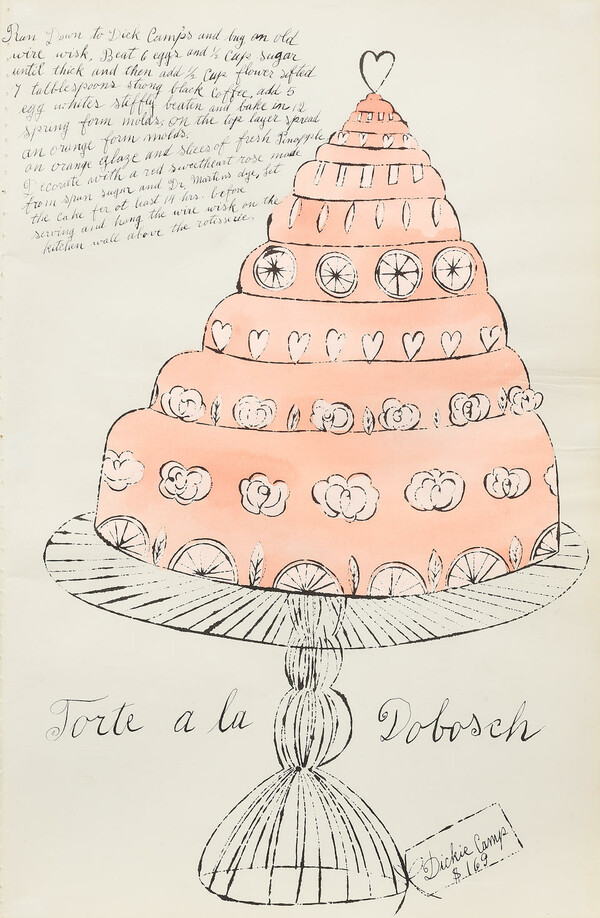 Run Down to Dick Camp's and buy an old
wire wisk. Beat 6 eggs and ½ cup sugar
until thick and then add ½ cup flower sifted
7 tabblespoons strong black coffee, add 5
egg whites stiffly beaten and bake in 12
spring form molds: on the top layer spread
an orange form molds.
an orange glaze and slices of fresh Pineapple
Decorate with a red sweetheart rose made
from spun sugar and Dr. Martens dye, let
the cake for at least 14 hrs. before
serving and hang the wire wisk on the
kitchen wall above the rotisserie.
Torte a la Dobosch
Dickie Camp
$ 169